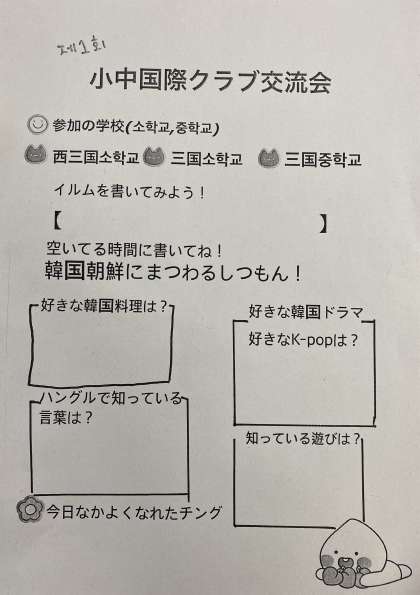 제1회
小中国際クラブ交流会
参加の学校(소학교,중학교)
西三国소학교 三国소학교 三国중학교
イルムを書いてみよう！
【 】
空いてる時間に書いてね！
韓国朝鮮にまつわるしつもん！
好きな韓国料理は？
好きな韓国ドラマ
好きなK-popは？
ハングルで知っている
言葉は？
知っている遊びは？
今日なかよくなれたチング